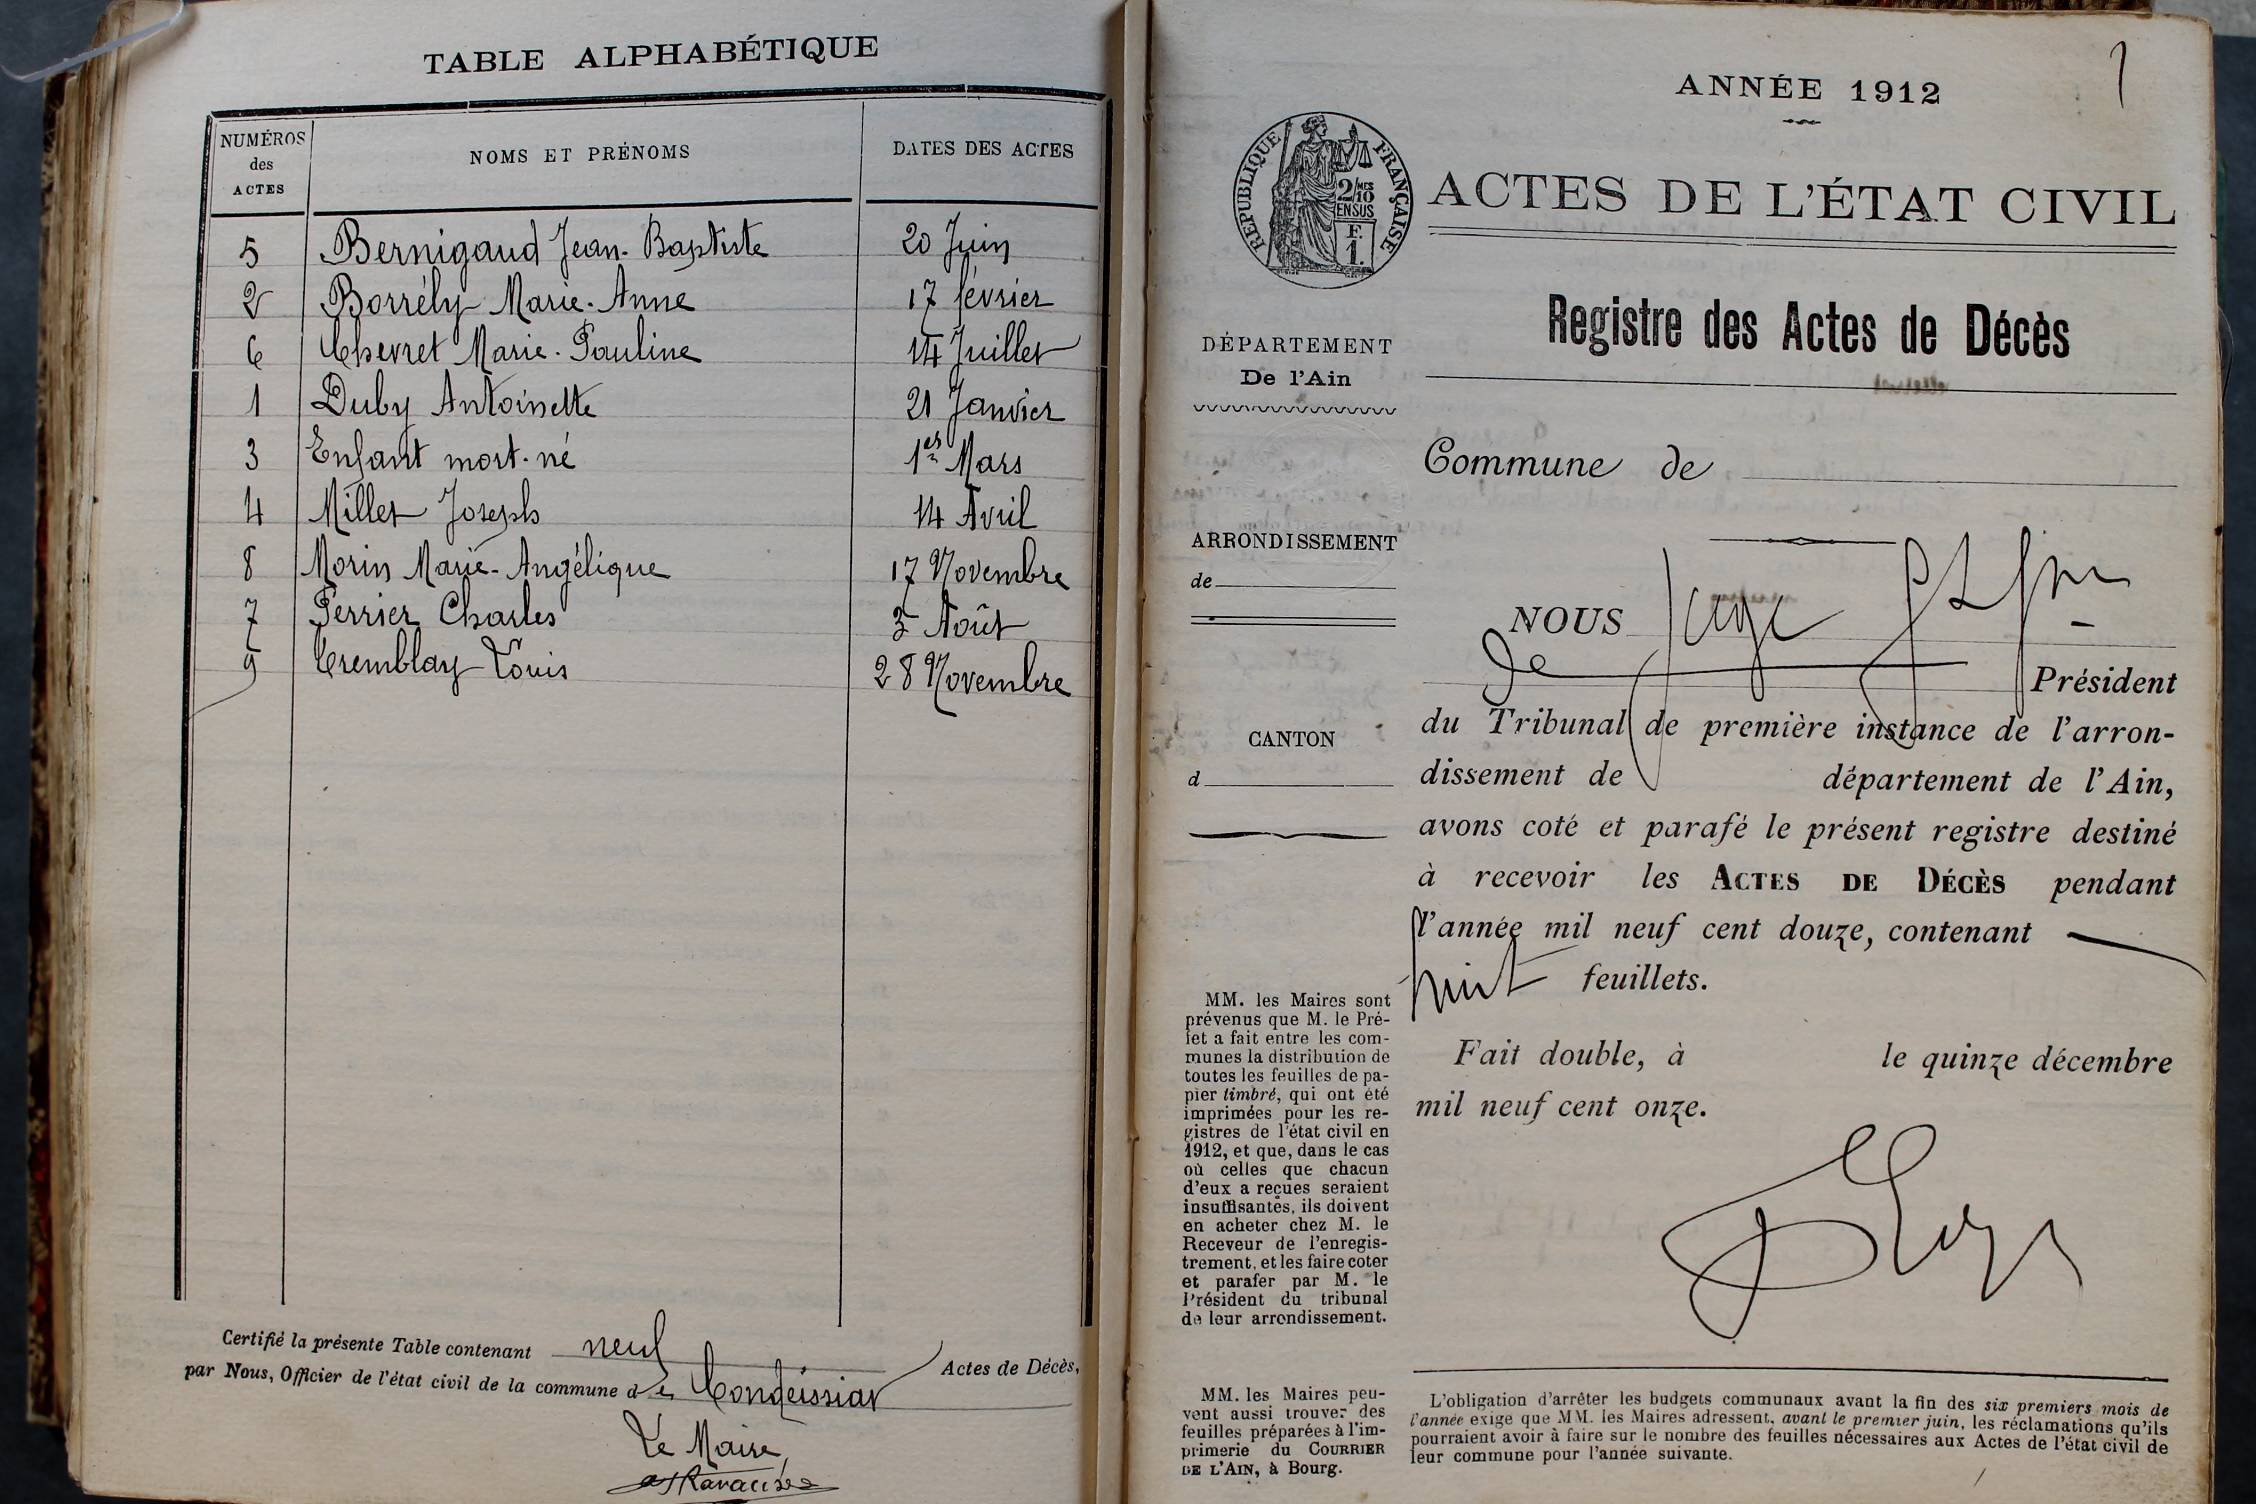 TABLE ALPHABÉTIQUE
NUMÉROS des ACTES
NOMS ET PRÉNOMS
DATES DES ACTES
5 Bernigaud Jean-Baptiste 20 Juin
2 Borrély Marie-Anne 17 février
6 Chevret Marie-Pauline 14 Juillet
1 Duby Antoinette 21 Janvier
3 Enfant mort-né 1er Mars
4 Millet Joseph 14 Avril
8 Morin Marie-Angélique 17 Novembre
7 Perrier Charles 3 Août
9 Tremblay Louis 28 Novembre
Certifié la présente Table contenant neuf Actes de Décès,
par Nous, Officier de l'état civil de la commune de Condeissiat
Le Maire
1
ANNÉE 1912
RÉPUBLIQUE FRANÇAISE
2/10 MES
EN SUS
F.
1.
ACTES DE L'ÉTAT CIVIL
Registre des Actes de Décès
DÉPARTEMENT
De l'Ain
ARRONDISSEMENT
de
CANTON
d
MM. les Maires sont
prévenus que M. le Pré-
fet a fait entre les com-
munes la distribution de
toutes les feuilles de pa-
pier timbré, qui ont été
imprimées pour les re-
gistres de l'état civil en
1912, et que, dans le cas
où celles que chacun
d'eux a reçues seraient
insuffisantes, ils doivent
en acheter chez M. le
Receveur de l'enregis-
trement, et les faire coter
et parafer par M. le
Président du tribunal
de leur arrondissement.
MM. les Maires peu-
vent aussi trouver des
feuilles préparées à l'im-
primerie du COURRIER
DE L'AIN, à Bourg.
Commune de
NOUS Juge
de Président
du Tribunal de première instance de l'arron-
dissement de département de l'Ain,
avons coté et parafé le présent registre destiné
à recevoir les ACTES DE DÉCÈS pendant
l'année mil neuf cent douze, contenant
huit feuillets.
Fait double, à le quinze décembre
mil neuf cent onze.
L'obligation d'arrêter les budgets communaux avant la fin des six premiers mois de
l'année exige que MM. les Maires adressent, avant le premier juin, les réclamations qu'ils
pourraient avoir à faire sur le nombre des feuilles nécessaires aux Actes de l'état civil de
leur commune pour l'année suivante.